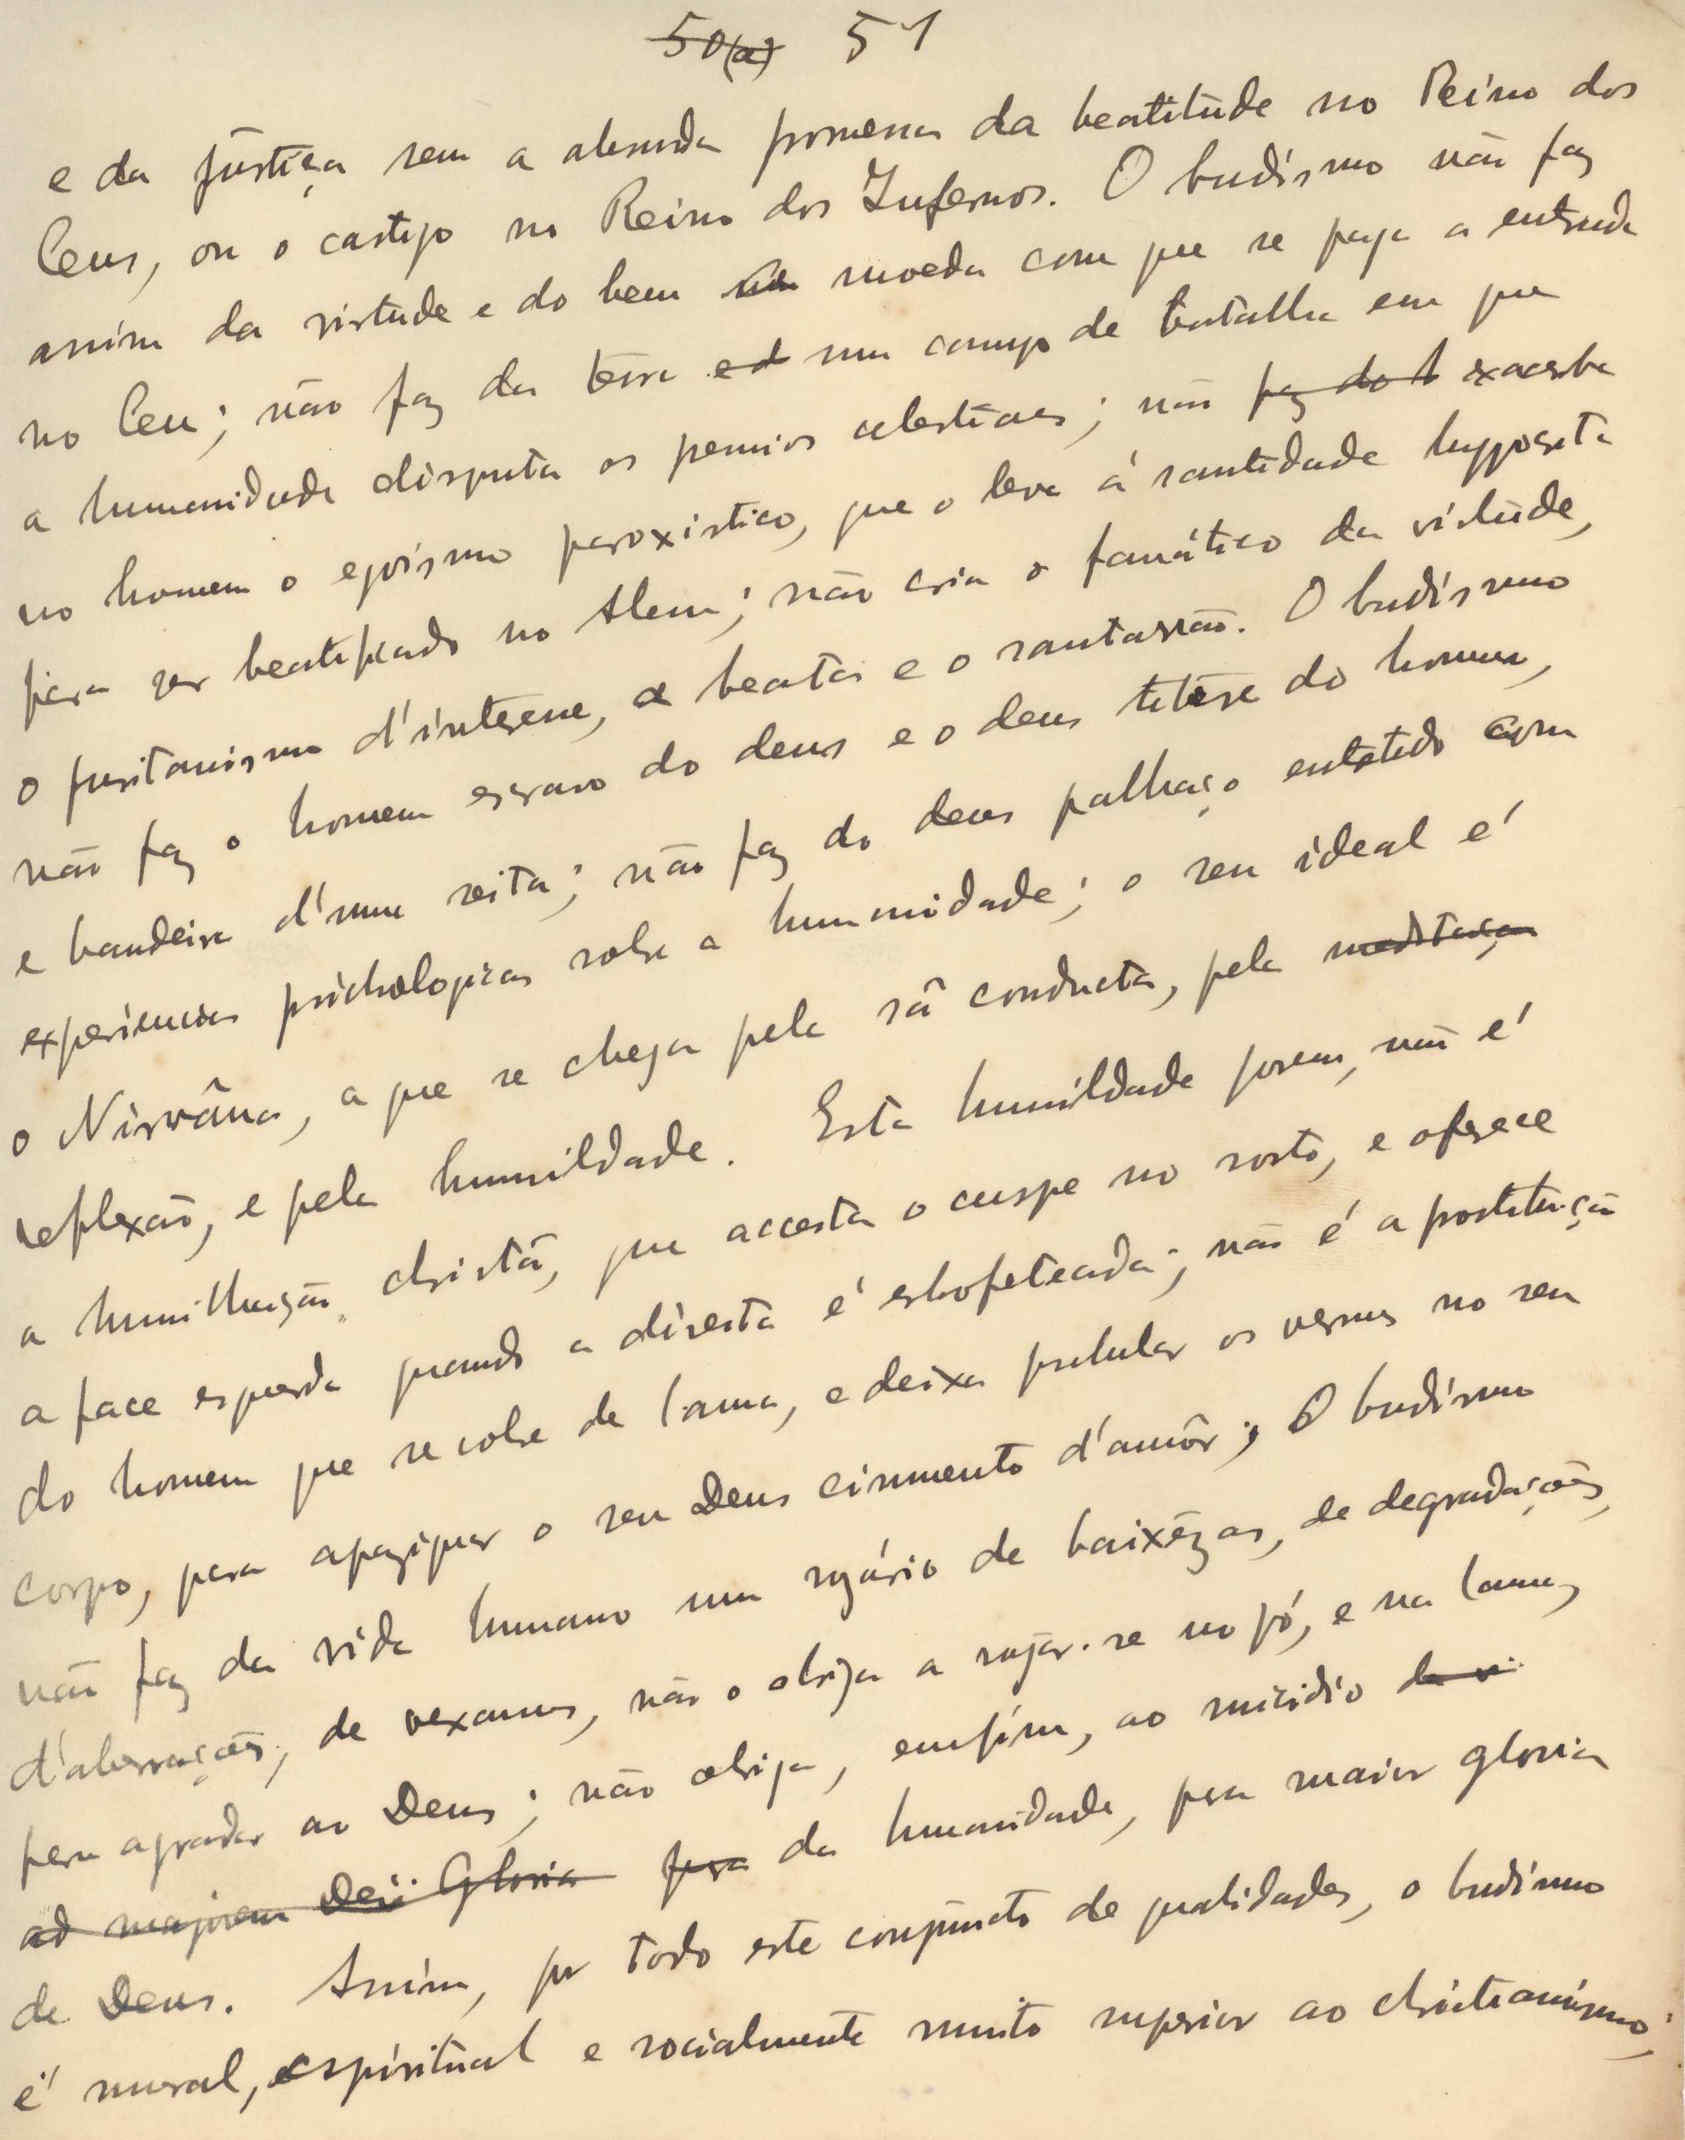 50(a) 51
e da justiça sem a absurda promessa da beatitude no Reino dos
Ceus, ou o castigo no Reino dos Infernos. O budismo não faz
assim da virtude e do bem moeda com que se paga a entrada
no Ceu; não faz da terra ed um campo de batalha em que
a humanidade disputa os premios celestiaes; não faz do h exacerba
no homem o egoismo paroxistico, que o leva á santidade hyppocrita
para ser beatificado no Alem; não cria o fanático da virtude,
o puritanismo d'interesse, a beata e o santarrão. O budismo
não faz o homem escravo do deus e o deus titere do homem,
e bandeira d'uma seita; não faz do deus palhaço entretido com
experiencias psichologicas sobre a humanidade; o seu ideal é
o Nirvâna, a que se chega pela sã conducta, pela meditação
reflexão, e pela humildade. Esta humildade porem, não é
a humilhação christã, que acceita o cuspe no rosto, e oferece
a face esquerda quando a direita é esbofeteada; não é a prostituição
do homem que se cobre de lama, e deixa pulular os vermes no seu
corpo, para apaziguar o seu Deus ciumento d'amôr; O budismo
não faz da vida humana um rozário de baixêzas, de degradações,
d'aberrações, de vexames, não o obriga a rojar-se no pó, e na lama,
para agradar ao Deus; não obriga, emfim, ao suicidio da v
ad majorem Dei Gloria para da humanidade, para maior gloria
de Deus. Assim, por todo este conjuncto de qualidades, o budismo
é moral, espiritual e socialmente muito superior ao christianismo;